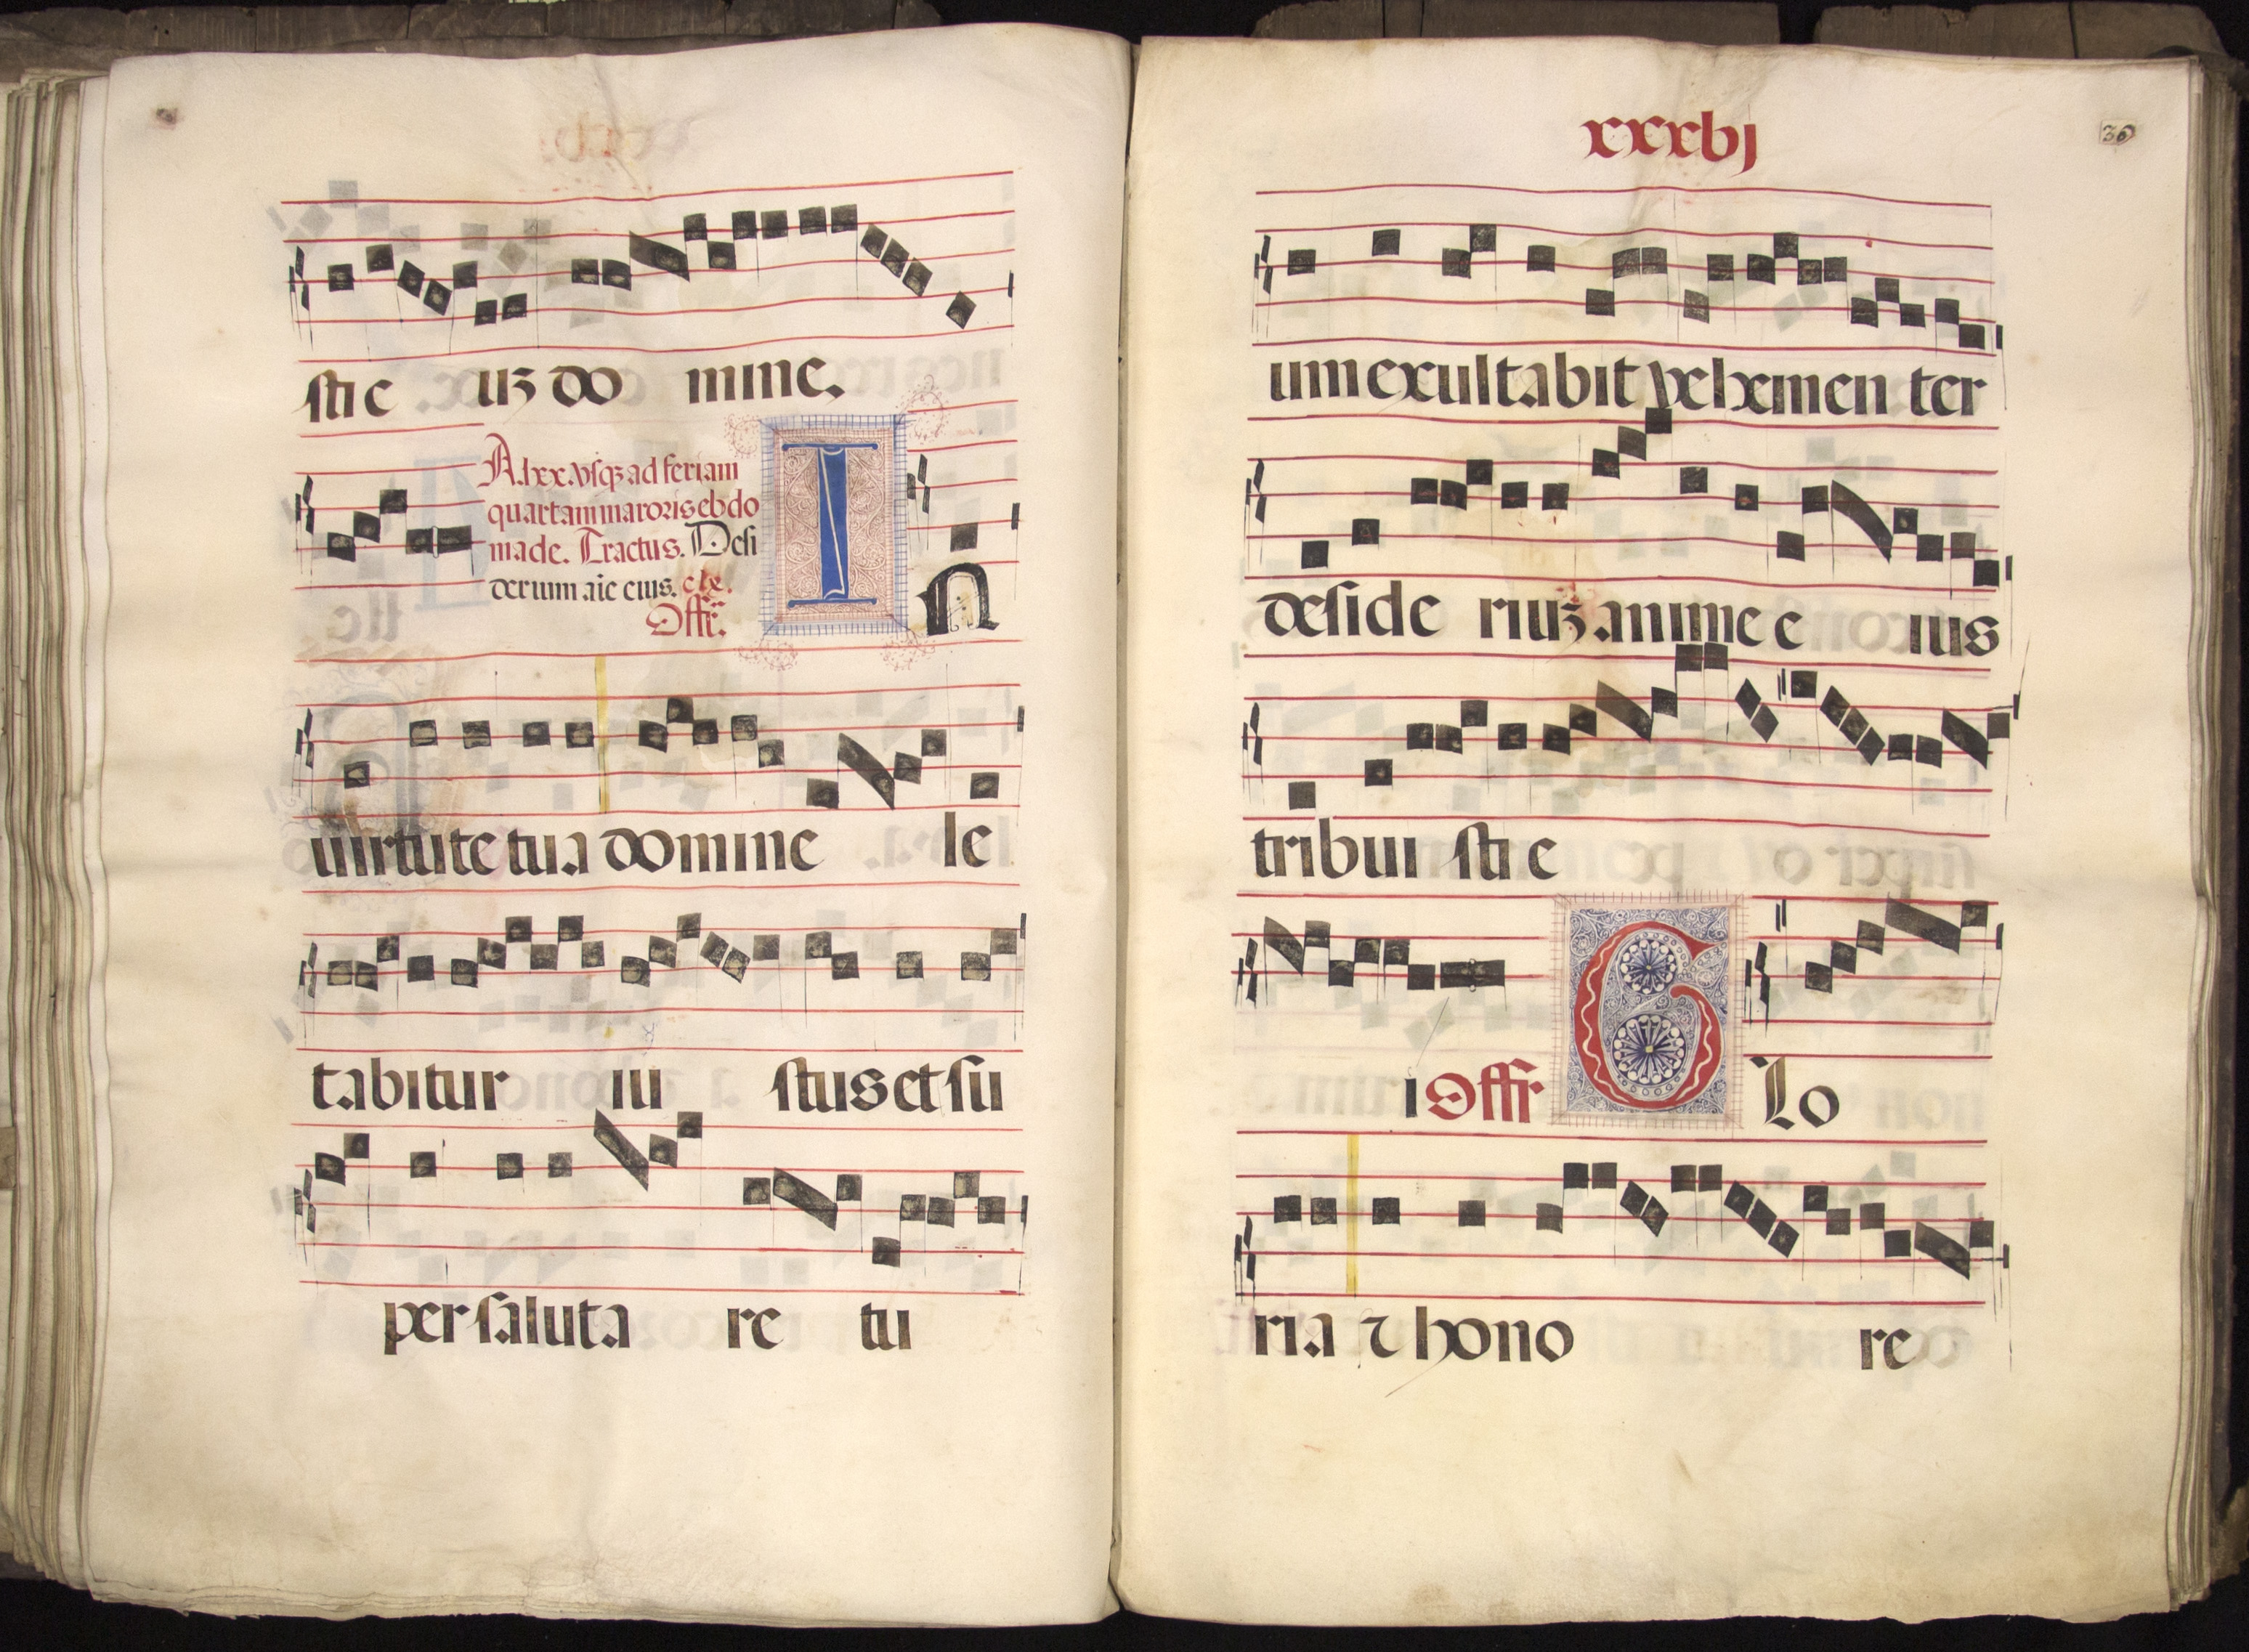 stie uȝ do mine.
A.lxx.vsqȝ ad feriam
quartam maroris ebdo
made. Tractus. Desi
derium aie eius. ete.
Offr.
I n
uirtute tua domine le
tabitur iu stus et su
per saluta re tu
xxxbj
36
um exultabit vehemen ter
deside riuȝ anime e ius
tribui sti e
i Offr G Lo
ria ⁊ hono re